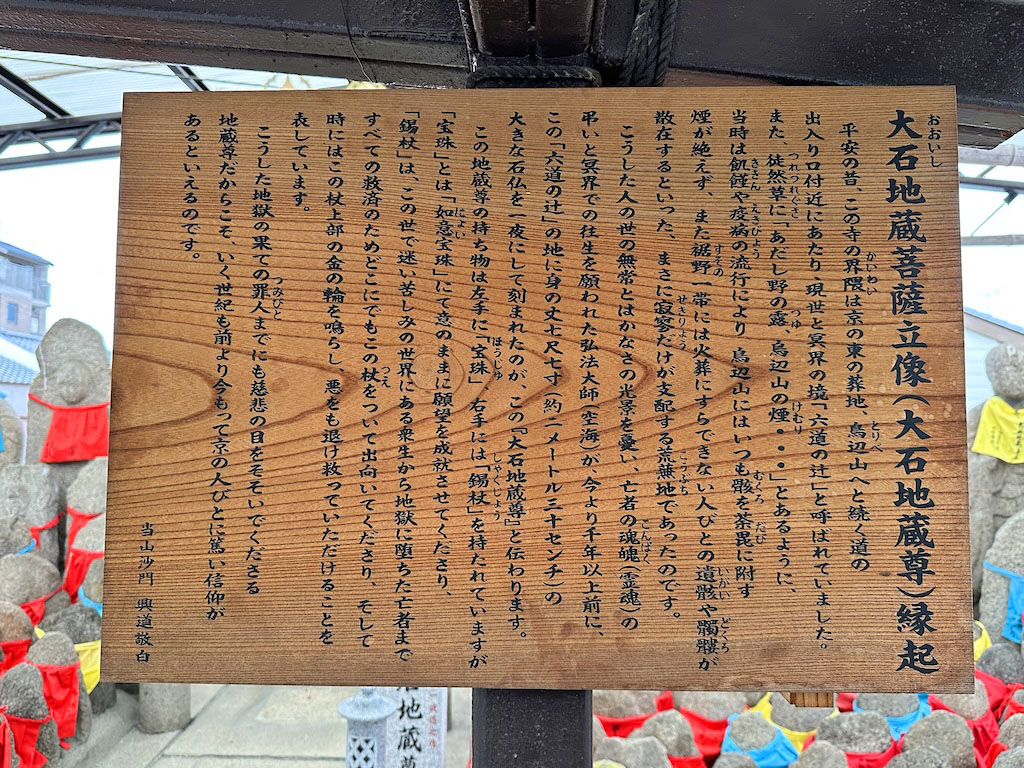 大石地蔵菩薩立像(大石地蔵尊)縁起
平安の昔、この寺の界隈は京の東の葬地、鳥辺山へと続く道の
出入り口付近にあたり現世と冥界の境「六道の辻」と呼ばれていました。
また、徒然草に「あだし野の露、鳥辺山の煙・・・」とあるように、
当時は飢饉や疫病の流行により、鳥辺山にはいつも骸を荼毘に附す
煙が絶えず、また裾野一帯には火葬にすらできない人びとの遺骸や髑髏が
散在するといった、まさに寂寥だけが支配する荒蕪地であったのです。
こうした人の世の無常とはかなさの光景を憂い、亡者の魂魄(霊魂)の
弔いと冥界での往生を願われた弘法大師(空海)が、今より千年以上前に、
この「六道の辻」の地に身の丈七尺七寸(約二メートル三十センチ)の
大きな石仏を一夜にして刻まれたのが、この『大石地蔵尊』と伝わります。
この地蔵尊の持ち物は左手に「宝珠」、右手には「錫杖」を持たれていますが
「宝珠」とは「如意宝珠」にて意のままに願望を成就させてくださり、
「錫杖」は、この世で迷い苦しみの世界にある衆生から地獄に堕ちた亡者まで
すべての救済のためどこにでもこの杖をついて出向いてくださり、そして
時にはこの杖上部の金の輪を鳴らし、悪をも退け救っていただけることを
表しています。
こうした地獄の果ての罪人までにも慈悲の目をそそいでくださる
地蔵尊だからこそ、いく世紀も前より今もって京の人びとに篤い信仰が
あるといえるのです。
当山沙門 興道敬白
石地蔵尊